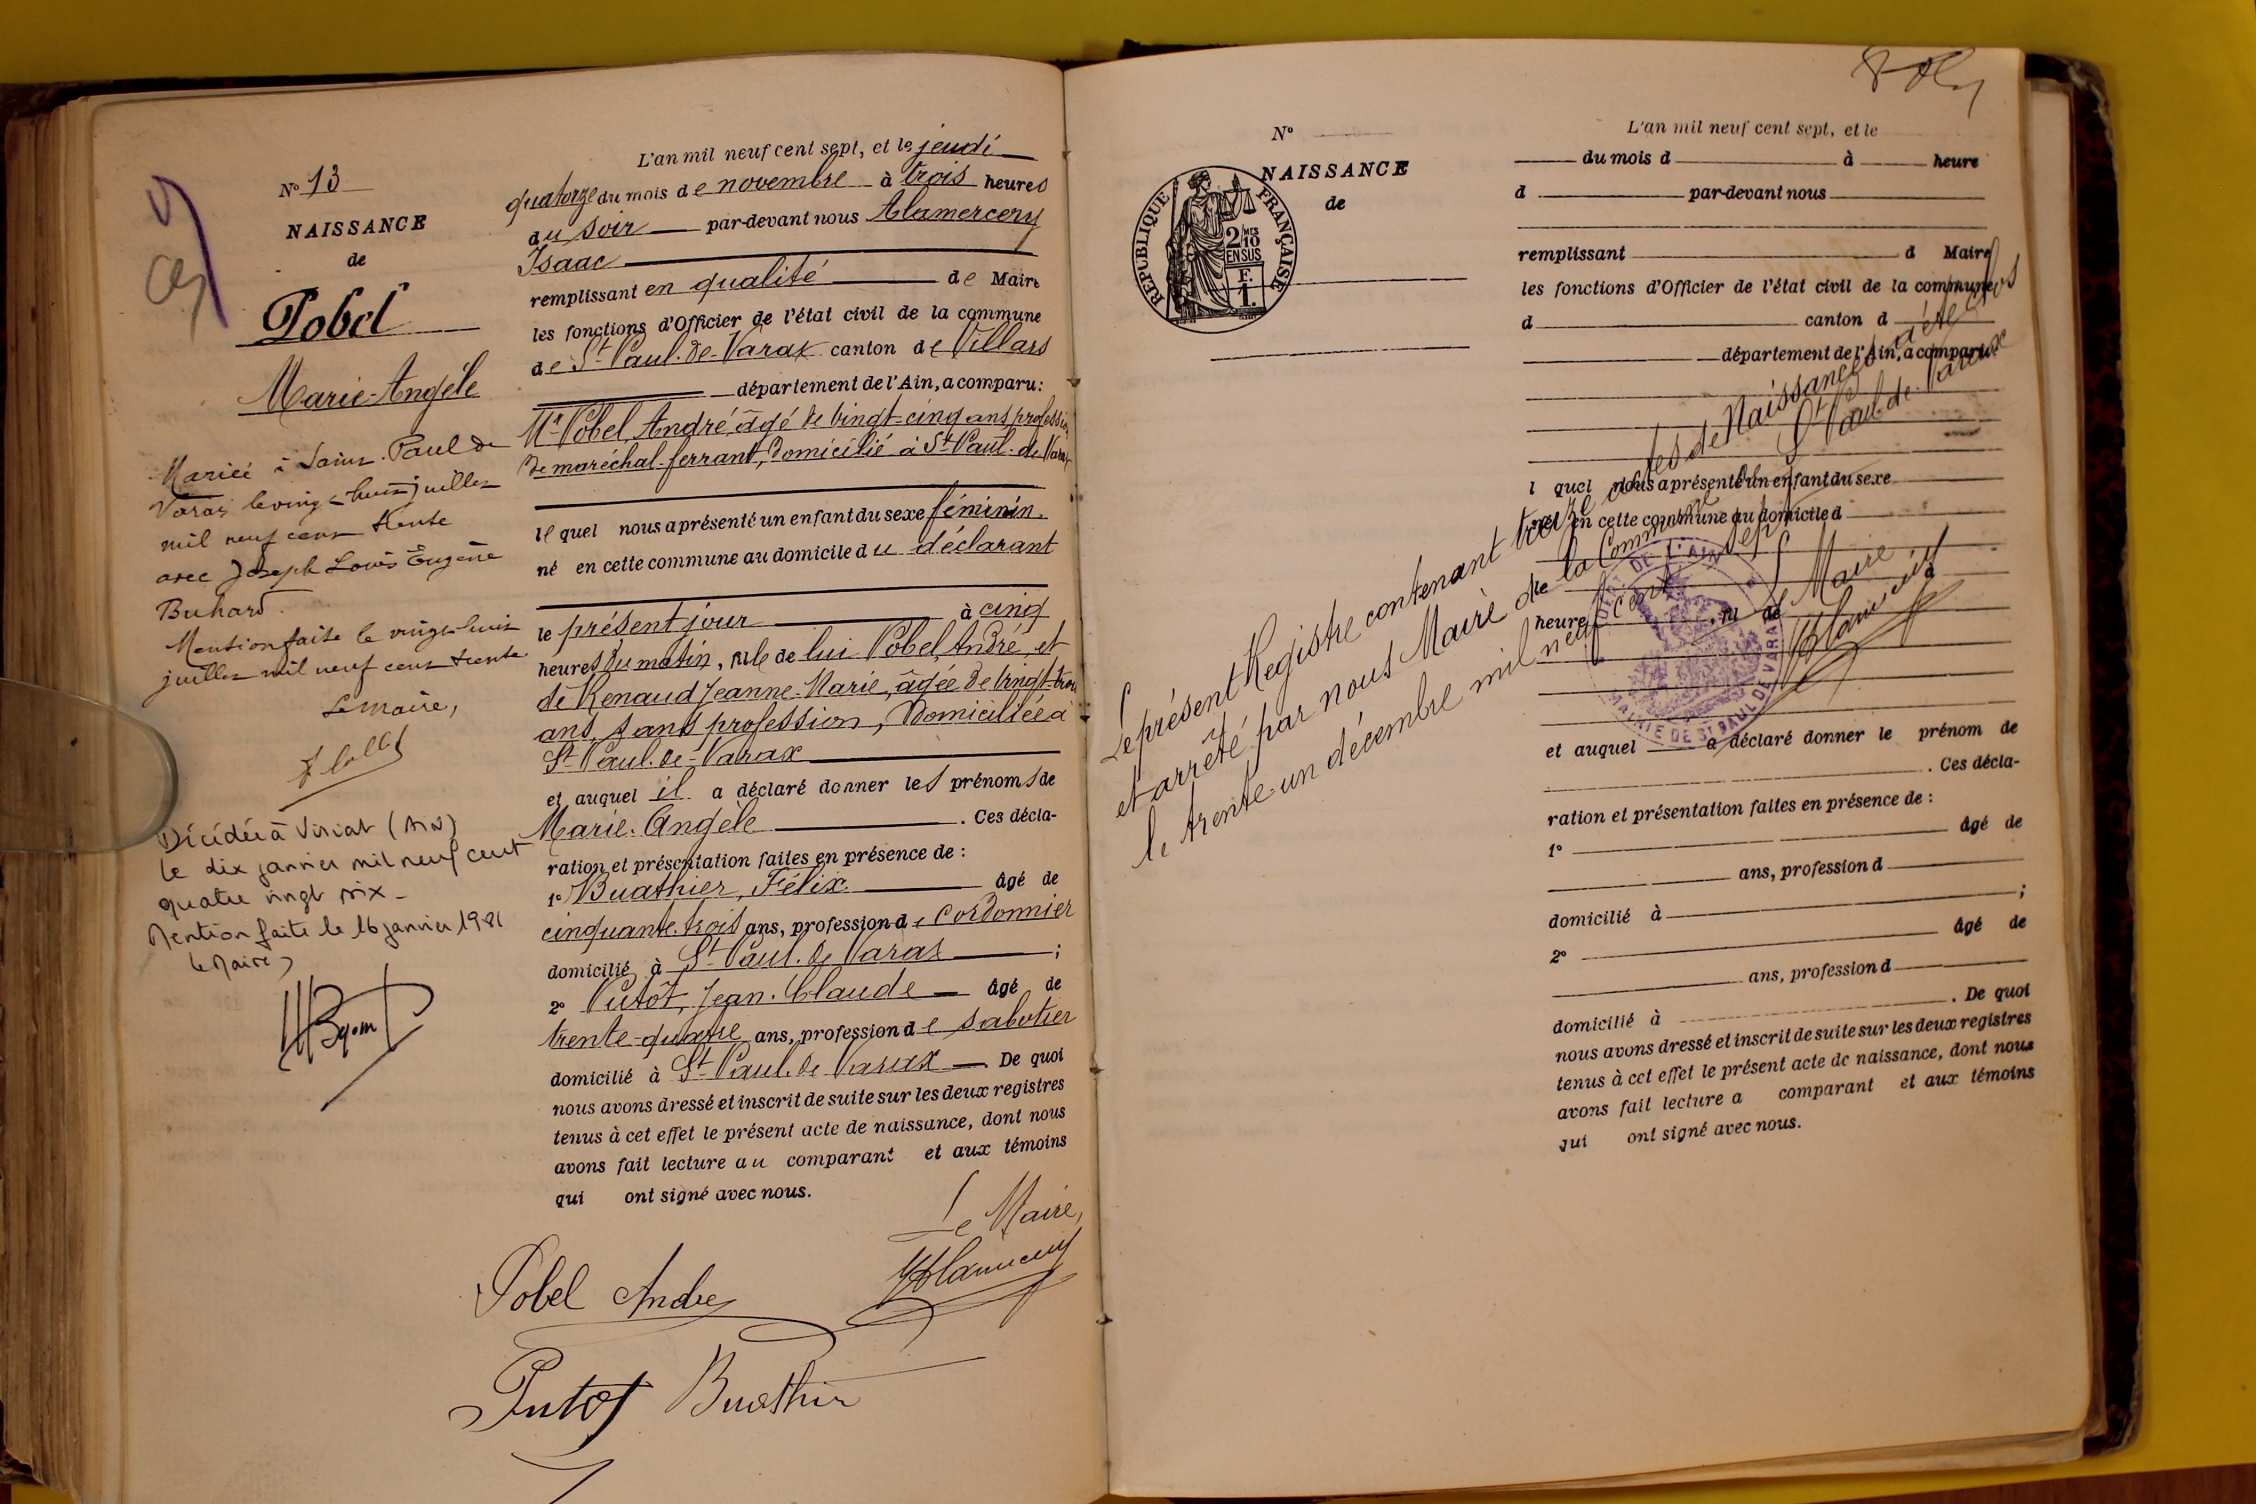 N° 13
NAISSANCE
de
Pobel
Marie-Angèle
Mariée à Saint-Paul de
Varax le vingt-huit juillet
mil neuf cent trente
avec Joseph Louis Eugène
Buhard.
Mention faite le vingt-huit
juillet mil neuf cent trente
Le maire,
Décédée à Viriat (Ain)
le dix janvier mil neuf cent
quatre vingt six -
Mention faite le 16 janvier 1986
le Maire
L'an mil neuf cent sept, et le jeudi
quatorze du mois de novembre à trois heures
du soir par-devant nous Alamercery
Isaac
remplissant en qualité de Maire
les fonctions d'Officier de l'état civil de la commune
de St Paul-de-Varax canton de Villars
département de l'Ain, a comparu:
Mr Pobel, André, âgé de vingt-cinq ans, profession
de maréchal-ferrant, domicilié à St Paul-de-Varax
lequel nous a présenté un enfant du sexe féminin.
né en cette commune au domicile du déclarant
le présent jour à cinq
heures du matin, fille de lui Pobel, André, et
de Renaud Jeanne-Marie, âgée de vingt-trois
ans, sans profession, domiciliée à
St Paul-de-Varax
et auquel il a déclaré donner les prénoms de
Marie-Angèle . Ces décla-
ration et présentation faites en présence de :
1° Buathier, Félix âgé de
cinquante-trois ans, profession de cordonnier
domicilié à St Paul-de Varax ;
2° Putôt, Jean-Claude âgé de
trente-quatre ans, profession de sabotier
domicilié à St Paul-de Varax . De quoi
nous avons dressé et inscrit de suite sur les deux registres
tenus à cet effet le présent acte de naissance, dont nous
avons fait lecture au comparant et aux témoins
qui ont signé avec nous.
Le Maire,
Pobel André
Putot Buathier
N°
NAISSANCE
de
RÉPUBLIQUE FRANÇAISE
2/10 MES
EN SUS
F.
1.
L'an mil neuf cent sept, et le
du mois d à heure
d par-devant nous
remplissant d Maire
les fonctions d'Officier de l'état civil de la commune
d canton d
département de l'Ain, a comparu
l quel nous a présenté un enfant du sexe
né en cette commune au domicile d
heure
et auquel a déclaré donner le prénom de
. Ces décla-
ration et présentation faites en présence de :
1° âgé de
ans, profession d
domicilié à ;
2° âgé de
ans, profession d
domicilié à . De quoi
nous avons dressé et inscrit de suite sur les deux registres
tenus à cet effet le présent acte de naissance, dont nous
avons fait lecture a comparant et aux témoins
qui ont signé avec nous.
Le présent Registre contenant treize actes de Naissances a été clos
et arrêté par nous Maire de la Commune de St Paul-de-Varax
le trente-un décembre mil neuf cent sept
Le Maire
MAIRIE DE ST PAUL DE VARAX
DE L'AIN